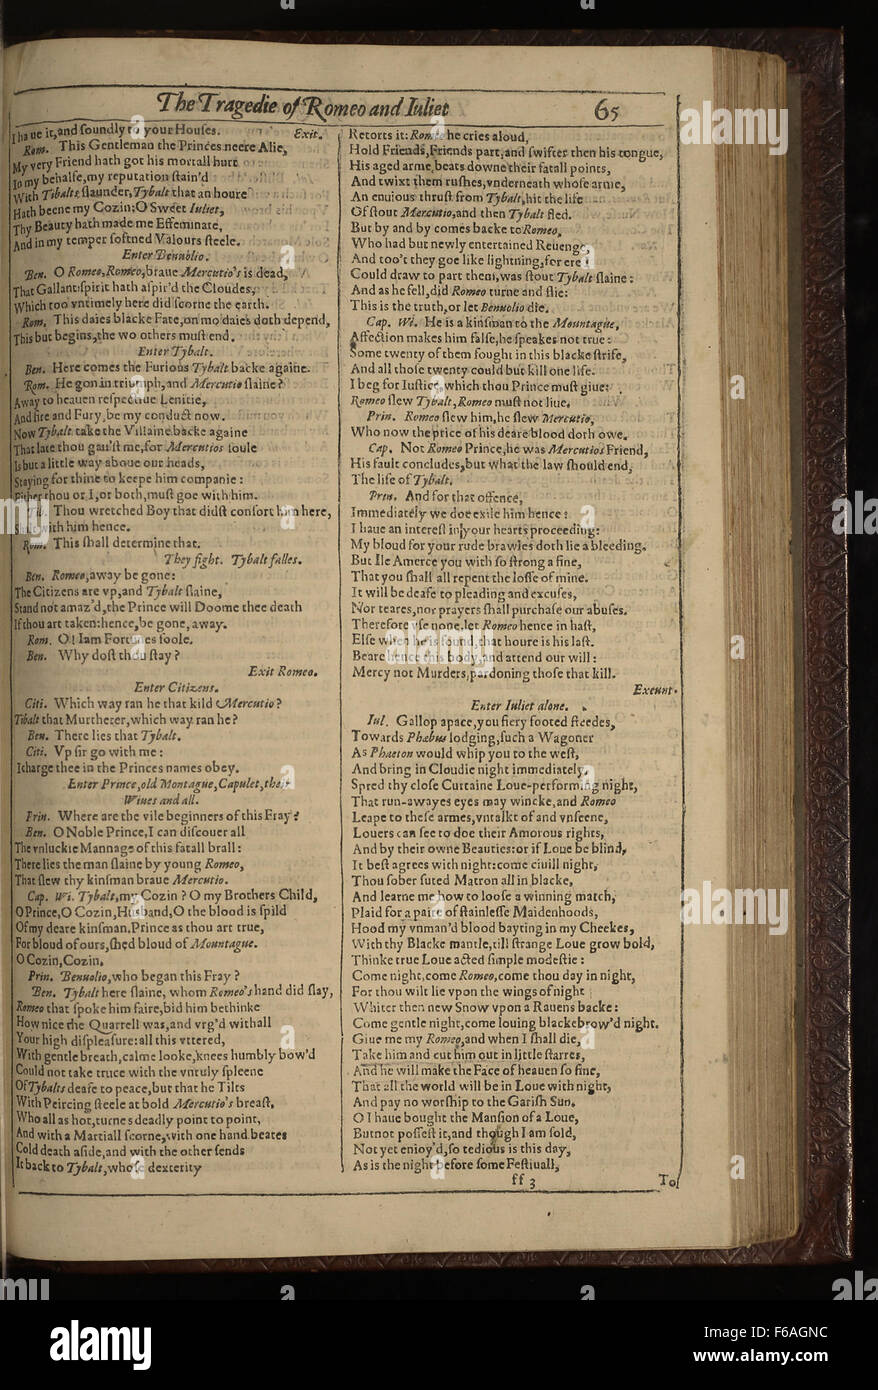 The Tragedie of Romeo and Iuliet 65
I haue it, and soundly to your Houses. Exit.
Rom. This Gentleman the Princes neere Alie,
My very Friend hath got his mortall hurt
In my behalfe, my reputation stain'd
With Tibalts slaunder, Tybalt that an houre
Hath beene my Cozin: O Sweet Iuliet,
Thy Beauty hath made me Effeminate,
And in my temper softned Valours steele.
Enter Benuolio.
Ben. O Romeo, Romeo, braue Mercutio's is dead,
That Gallant spirit hath aspir'd the Cloudes,
Which too vntimely here did scorne the earth.
Rom. This daies blacke Fate, on mo daies doth depend,
This but begins, the wo others must end.
Enter Tybalt.
Ben. Here comes the Furious Tybalt backe againe.
Rom. He gon in triumph, and Mercutio slaine?
Away to heauen respectiue Lenitie,
And fire and Fury, be my conduct now.
Now Tybalt take the Villaine backe againe
That late thou gau'st me, for Mercutios soule
Is but a little way aboue our heads,
Staying for thine to keepe him companie:
Either thou or I, or both, must goe with him.
Tib. Thou wretched Boy that didst consort him here,
Shalt with him hence.
Rom. This shall determine that.
They fight. Tybalt falles.
Ben. Romeo, away be gone:
The Citizens are vp, and Tybalt slaine,
Stand not amaz'd, the Prince will Doome thee death
If thou art taken: hence, be gone, away.
Rom. O! I am Fortunes foole.
Ben. Why dost thou stay?
Exit Romeo.
Enter Citizens.
Citi. Which way ran he that kild Mercutio?
Tibalt that Murtherer, which way ran he?
Ben. There lies that Tybalt.
Citi. Vp sir go with me:
I charge thee in the Princes names obey.
Enter Prince, old Montague, Capulet, their
Wiues and all.
Prin. Where are the vile beginners of this Fray?
Ben. O Noble Prince, I can discouer all
The vnluckie Mannage of this fatall brall:
There lies the man slaine by young Romeo,
That slew thy kinsman braue Mercutio.
Cap. Wi. Tybalt, my Cozin? O my Brothers Child,
O Prince, O Cozin, Husband, O the blood is spild
Of my deare kinsman. Prince as thou art true,
For bloud of ours, shed bloud of Mountague.
O Cozin, Cozin.
Prin. Benuolio, who began this Fray?
Ben. Tybalt here slaine, whom Romeo's hand did slay,
Romeo that spoke him faire, bid him bethinke
How nice the Quarrell was, and vrg'd withall
Your high displeasure: all this vttered,
With gentle breath, calme looke, knees humbly bow'd
Could not take truce with the vnruly spleene
Of Tybalts deafe to peace, but that he Tilts
With Peircing steele at bold Mercutio's breast,
Who all as hot, turnes deadly point to point,
And with a Martiall scorne, with one hand beates
Cold death aside, and with the other sends
It back to Tybalt, whose dexterity
Retorts it: Romeo he cries aloud,
Hold Friends, Friends part, and swifter then his tongue,
His aged arme, beats downe their fatall points,
And twixt them rushes, vnderneath whose arme,
An enuious thrust from Tybalt, hit the life
Of stout Mercutio, and then Tybalt fled.
But by and by comes backe to Romeo,
Who had but newly entertained Reuenge,
And too't they goe like lightning, for ere I
Could draw to part them, was stout Tybalt slaine:
And as he fell, did Romeo turne and flie:
This is the truth, or let Benuolio die.
Cap. Wi. He is a kinsman to the Mountague,
Affection makes him false, he speakes not true:
Some twenty of them fought in this blacke strife,
And all those twenty could but kill one life.
I beg for Iustice, which thou Prince must giue:
Romeo slew Tybalt, Romeo must not liue.
Prin. Romeo slew him, he slew Mercutio,
Who now the price of his deare blood doth owe.
Cap. Not Romeo Prince, he was Mercutios Friend,
His fault concludes, but what the law should end,
The life of Tybalt.
Prin. And for that offence,
Immediately we doe exile him hence:
I haue an interest in your hearts proceeding:
My bloud for your rude brawles doth lie a bleeding.
But Ile Amerce you with so strong a fine,
That you shall all repent the losse of mine.
It will be deafe to pleading and excuses,
Nor teares, nor prayers shall purchase our abuses.
Therefore vse none, let Romeo hence in hast,
Else when he is found, that houre is his last.
Beare hence this body, and attend our will:
Mercy not Murders, pardoning those that kill.
Exeunt.
Enter Iuliet alone.
Iul. Gallop apace, you fiery footed steedes,
Towards Phœbus lodging, such a Wagoner
As Phaeton would whip you to the west,
And bring in Cloudie night immediately.
Spred thy close Curtaine Loue-performing night,
That run-awayes eyes may wincke, and Romeo
Leape to these armes, vntalkt of and vnseene,
Louers can see to doe their Amorous rights,
And by their owne Beauties: or if Loue be blind,
It best agrees with night: come ciuill night,
Thou sober suted Matron all in blacke,
And learne me how to loose a winning match,
Plaid for a paire of stainlesse Maidenhoods,
Hood my vnman'd blood bayting in my Cheekes,
With thy Blacke mantle, till strange Loue grow bold,
Thinke true Loue acted simple modestie:
Come night, come Romeo, come thou day in night,
For thou wilt lie vpon the wings of night
Whiter then new Snow vpon a Rauens backe:
Come gentle night, come louing blackebrow'd night.
Giue me my Romeo, and when I shall die,
Take him and cut him out in little starres,
And he will make the Face of heauen so fine,
That all the world will be in Loue with night,
And pay no worship to the Garish Sun.
O I haue bought the Mansion of a Loue,
But not possest it, and though I am sold,
Not yet enioy'd, so tedious is this day,
As is the night before some Festiuall,
ff 3 To
alamy
alamy stock photo
F6AGNC
www.alamy.com